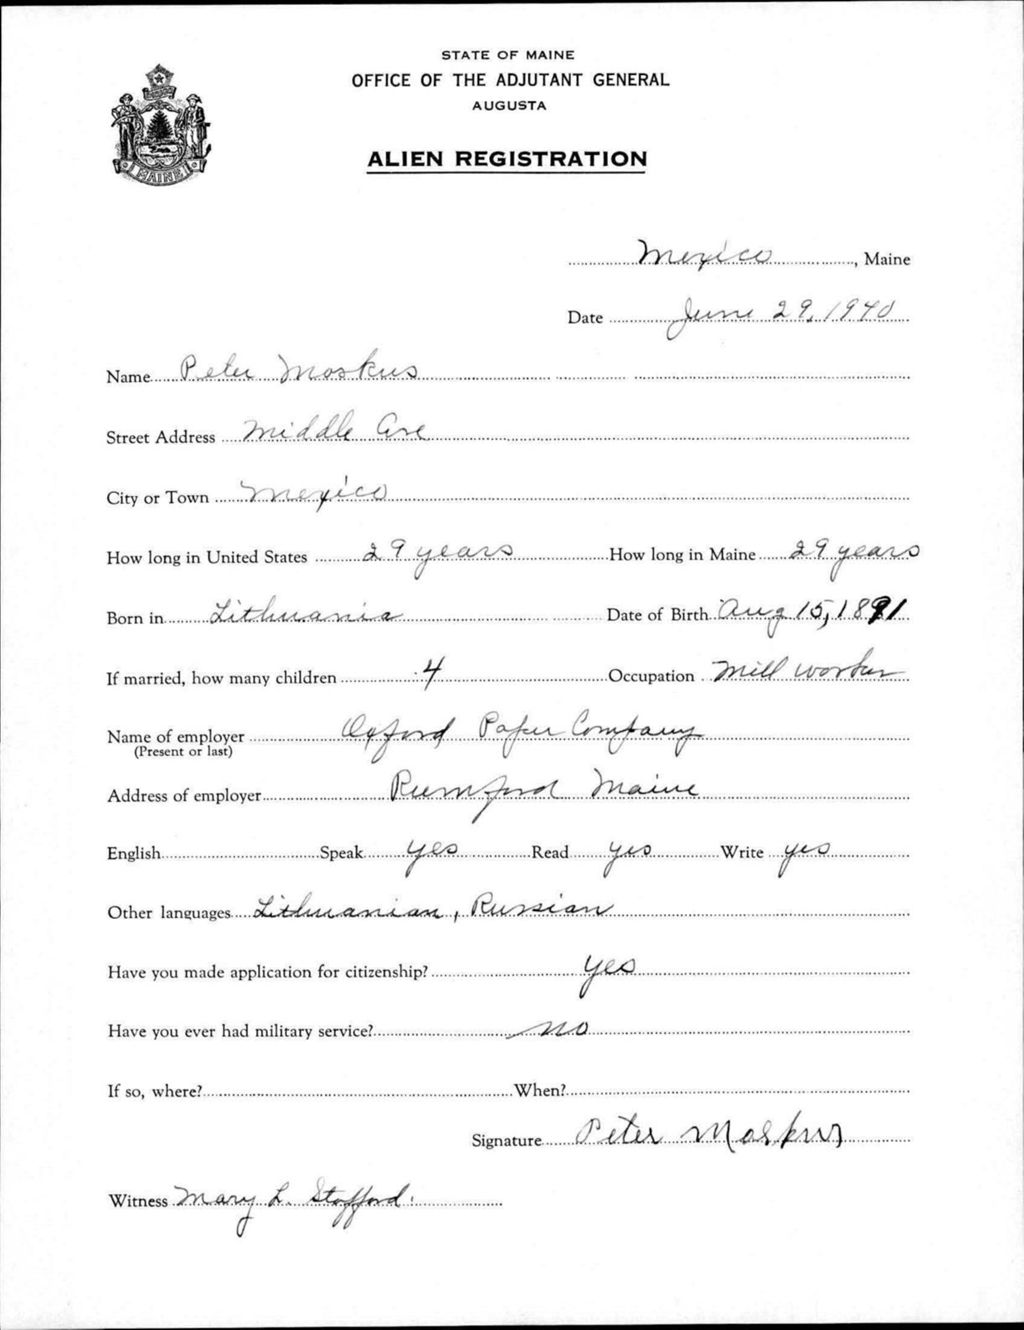 STATE OF MAINE
OFFICE OF THE ADJUTANT GENERAL
AUGUSTA
ALIEN REGISTRATION
MAINE
Mexico, Maine
Date June 29, 1940
Name Peter Moskus
Street Address Middle Ave
City or Town Mexico
How long in United States 29 years How long in Maine 29 years
Born in Lithuania Date of Birth Aug 15, 1891
If married, how many children 4 Occupation Mill worker
Name of employer Oxford Paper Company
(Present or last)
Address of employer Rumford Maine
English Speak yes Read yes Write yes
Other languages Lithuanian, Russian
Have you made application for citizenship? yes
Have you ever had military service? no
If so, where? When?
Signature Peter Moskus
Witness Mary L. Stafford.